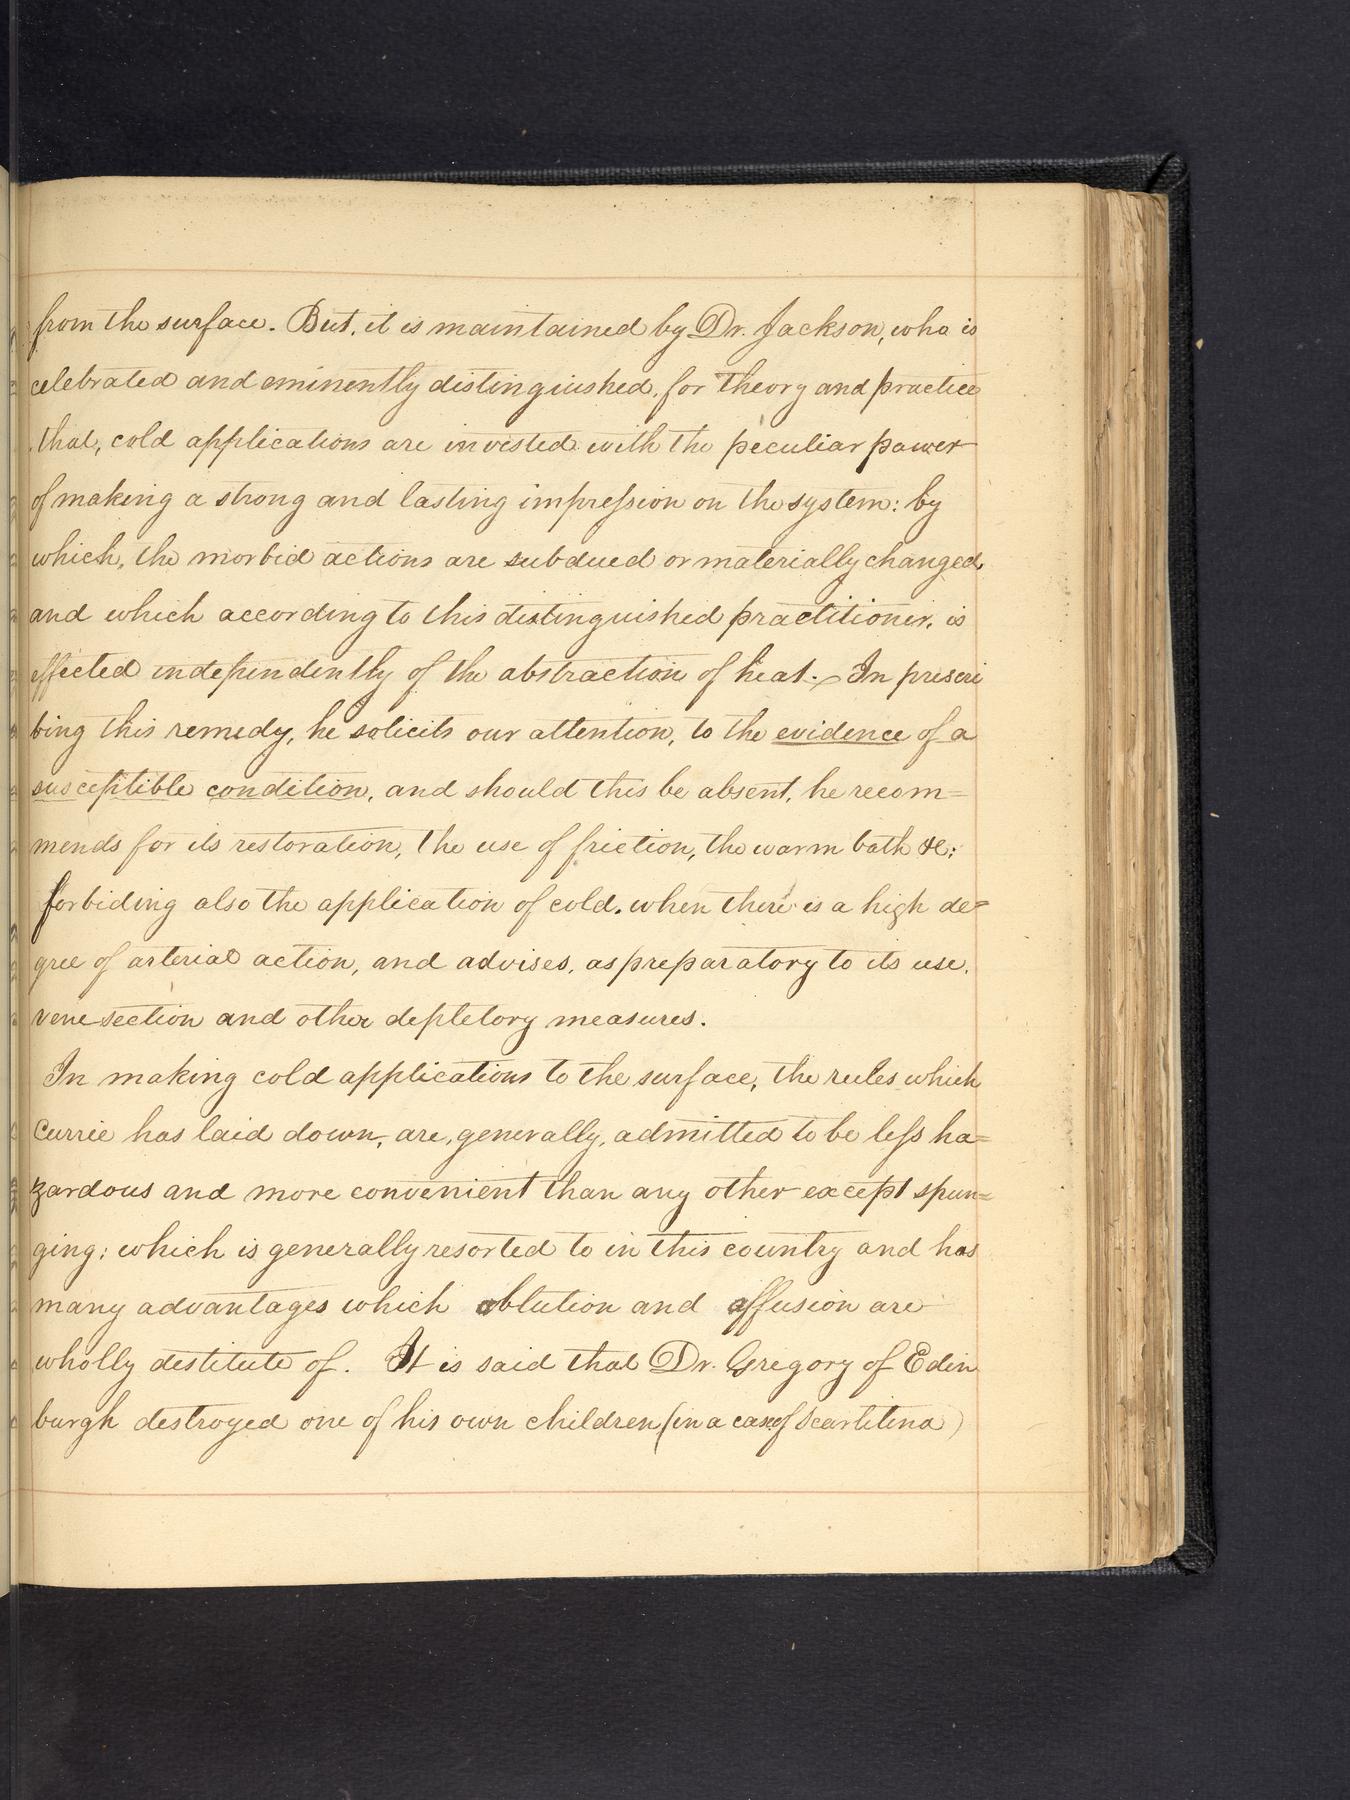 from the surface. But, it is maintained by Dr. Jackson, who is
celebrated and eminently distinguished, for theory and practice
that, cold applications are invested with the peculiar power
of making a strong and lasting impreſsion on the system: by
which, the morbid actions are subdued or materially changed,
and which according to this distinguished practitioner, is
effected independently of the abstraction of heat. In prescri
bing this remedy, he solicits our attention, to the evidence of a
susceptible condition, and should this be absent, he recom=
mends for its restoration, the use of friction, the warm bath &c;
forbiding also the application of cold. when there is a high de=
gree of arterial action, and advises, as preparatory to its use,
venesection and other depletory measures.
In making cold applications to the surface, the rules which
Currie has laid down, are, generally, admitted to be leſs ha=
zardous and more convenient than any other except spun=
ging; which is generally resorted to in this country and has
many advantages which ablution and affusion are
wholly destitute of. It is said that Dr. Gregory of Edin
burgh destroyed one of his own children (in a case of Scarlitina)